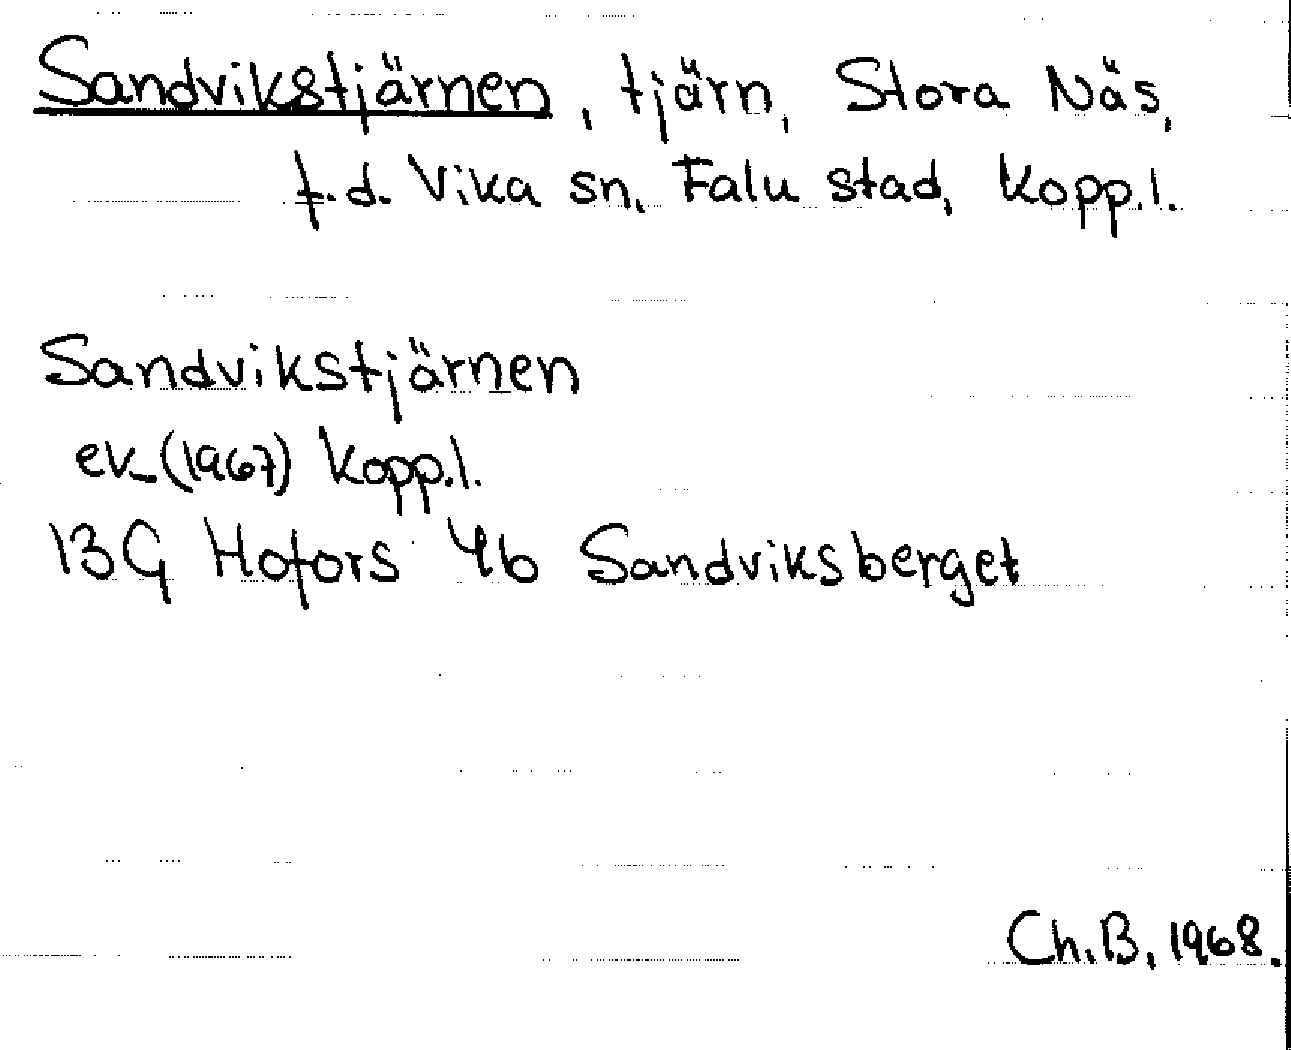 Sandvikstjärnen, tjärn, Stora Näs,
f.d. Vika sn, Falu stad, Kopp.l.
Sandvikstjärnen
ek (1967) Kopp.l.
13G Hofors 4b Sandviksberget
Ch.B, 1968.